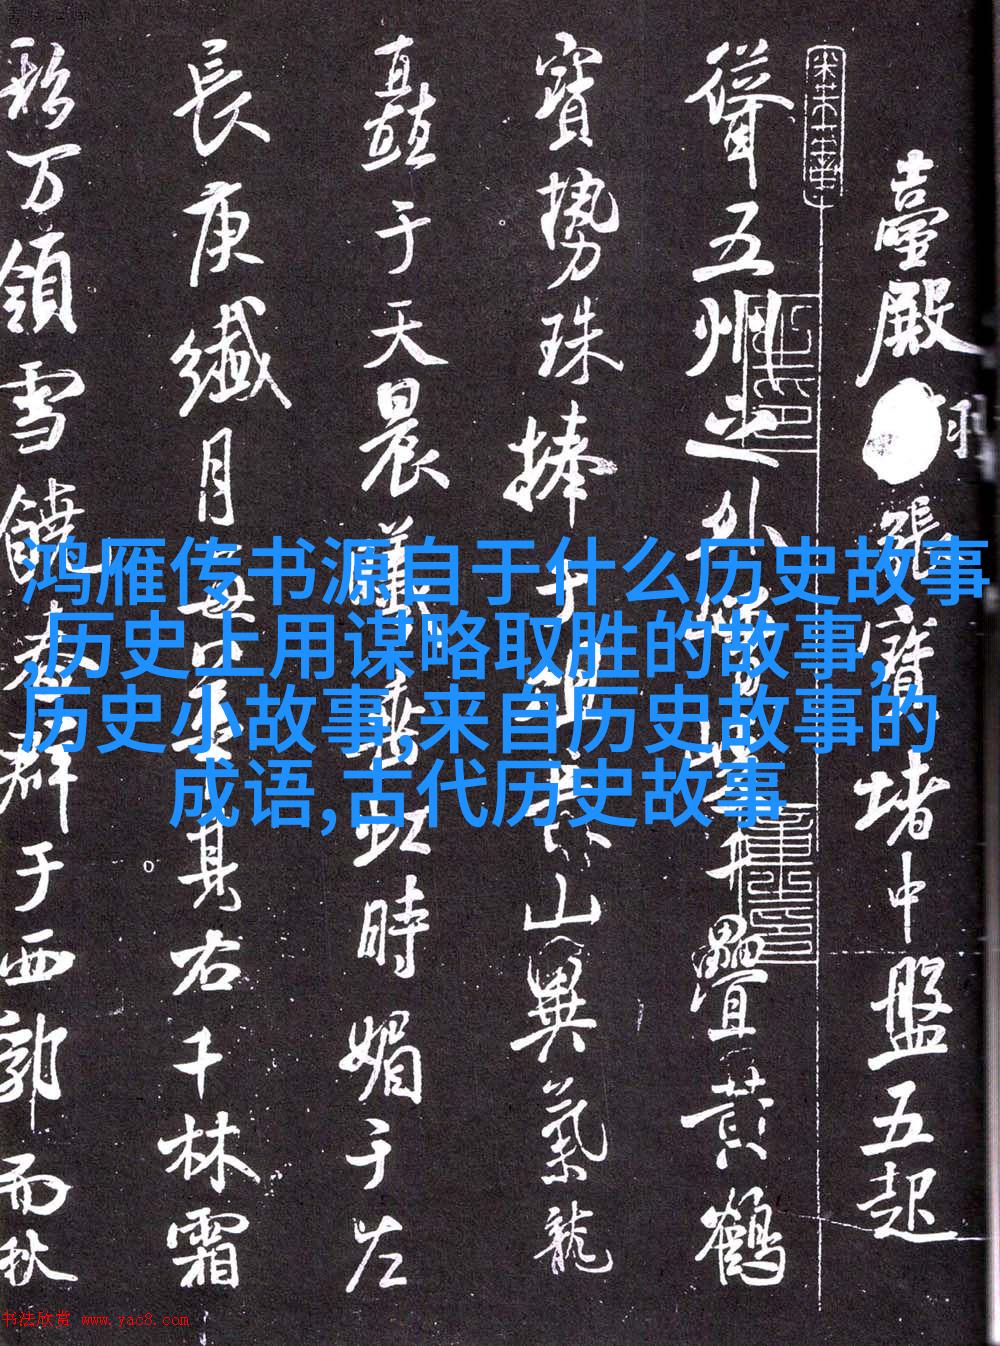 臺殿
張寶堵中盤五起
聳五州之外
疊黃鶴
寶勢珠捧于
山異氣龍
矗于天晨
虹時媚于左
長庚纖月
具右千林霜
彩万領雪饒
群于西郭而秋
鸿雁传书源自于什么历史故事
,历史上用谋略取胜的故事,
历史小故事,来自历史故事的
成语,古代历史故事
书法欣赏 www.yac8.com